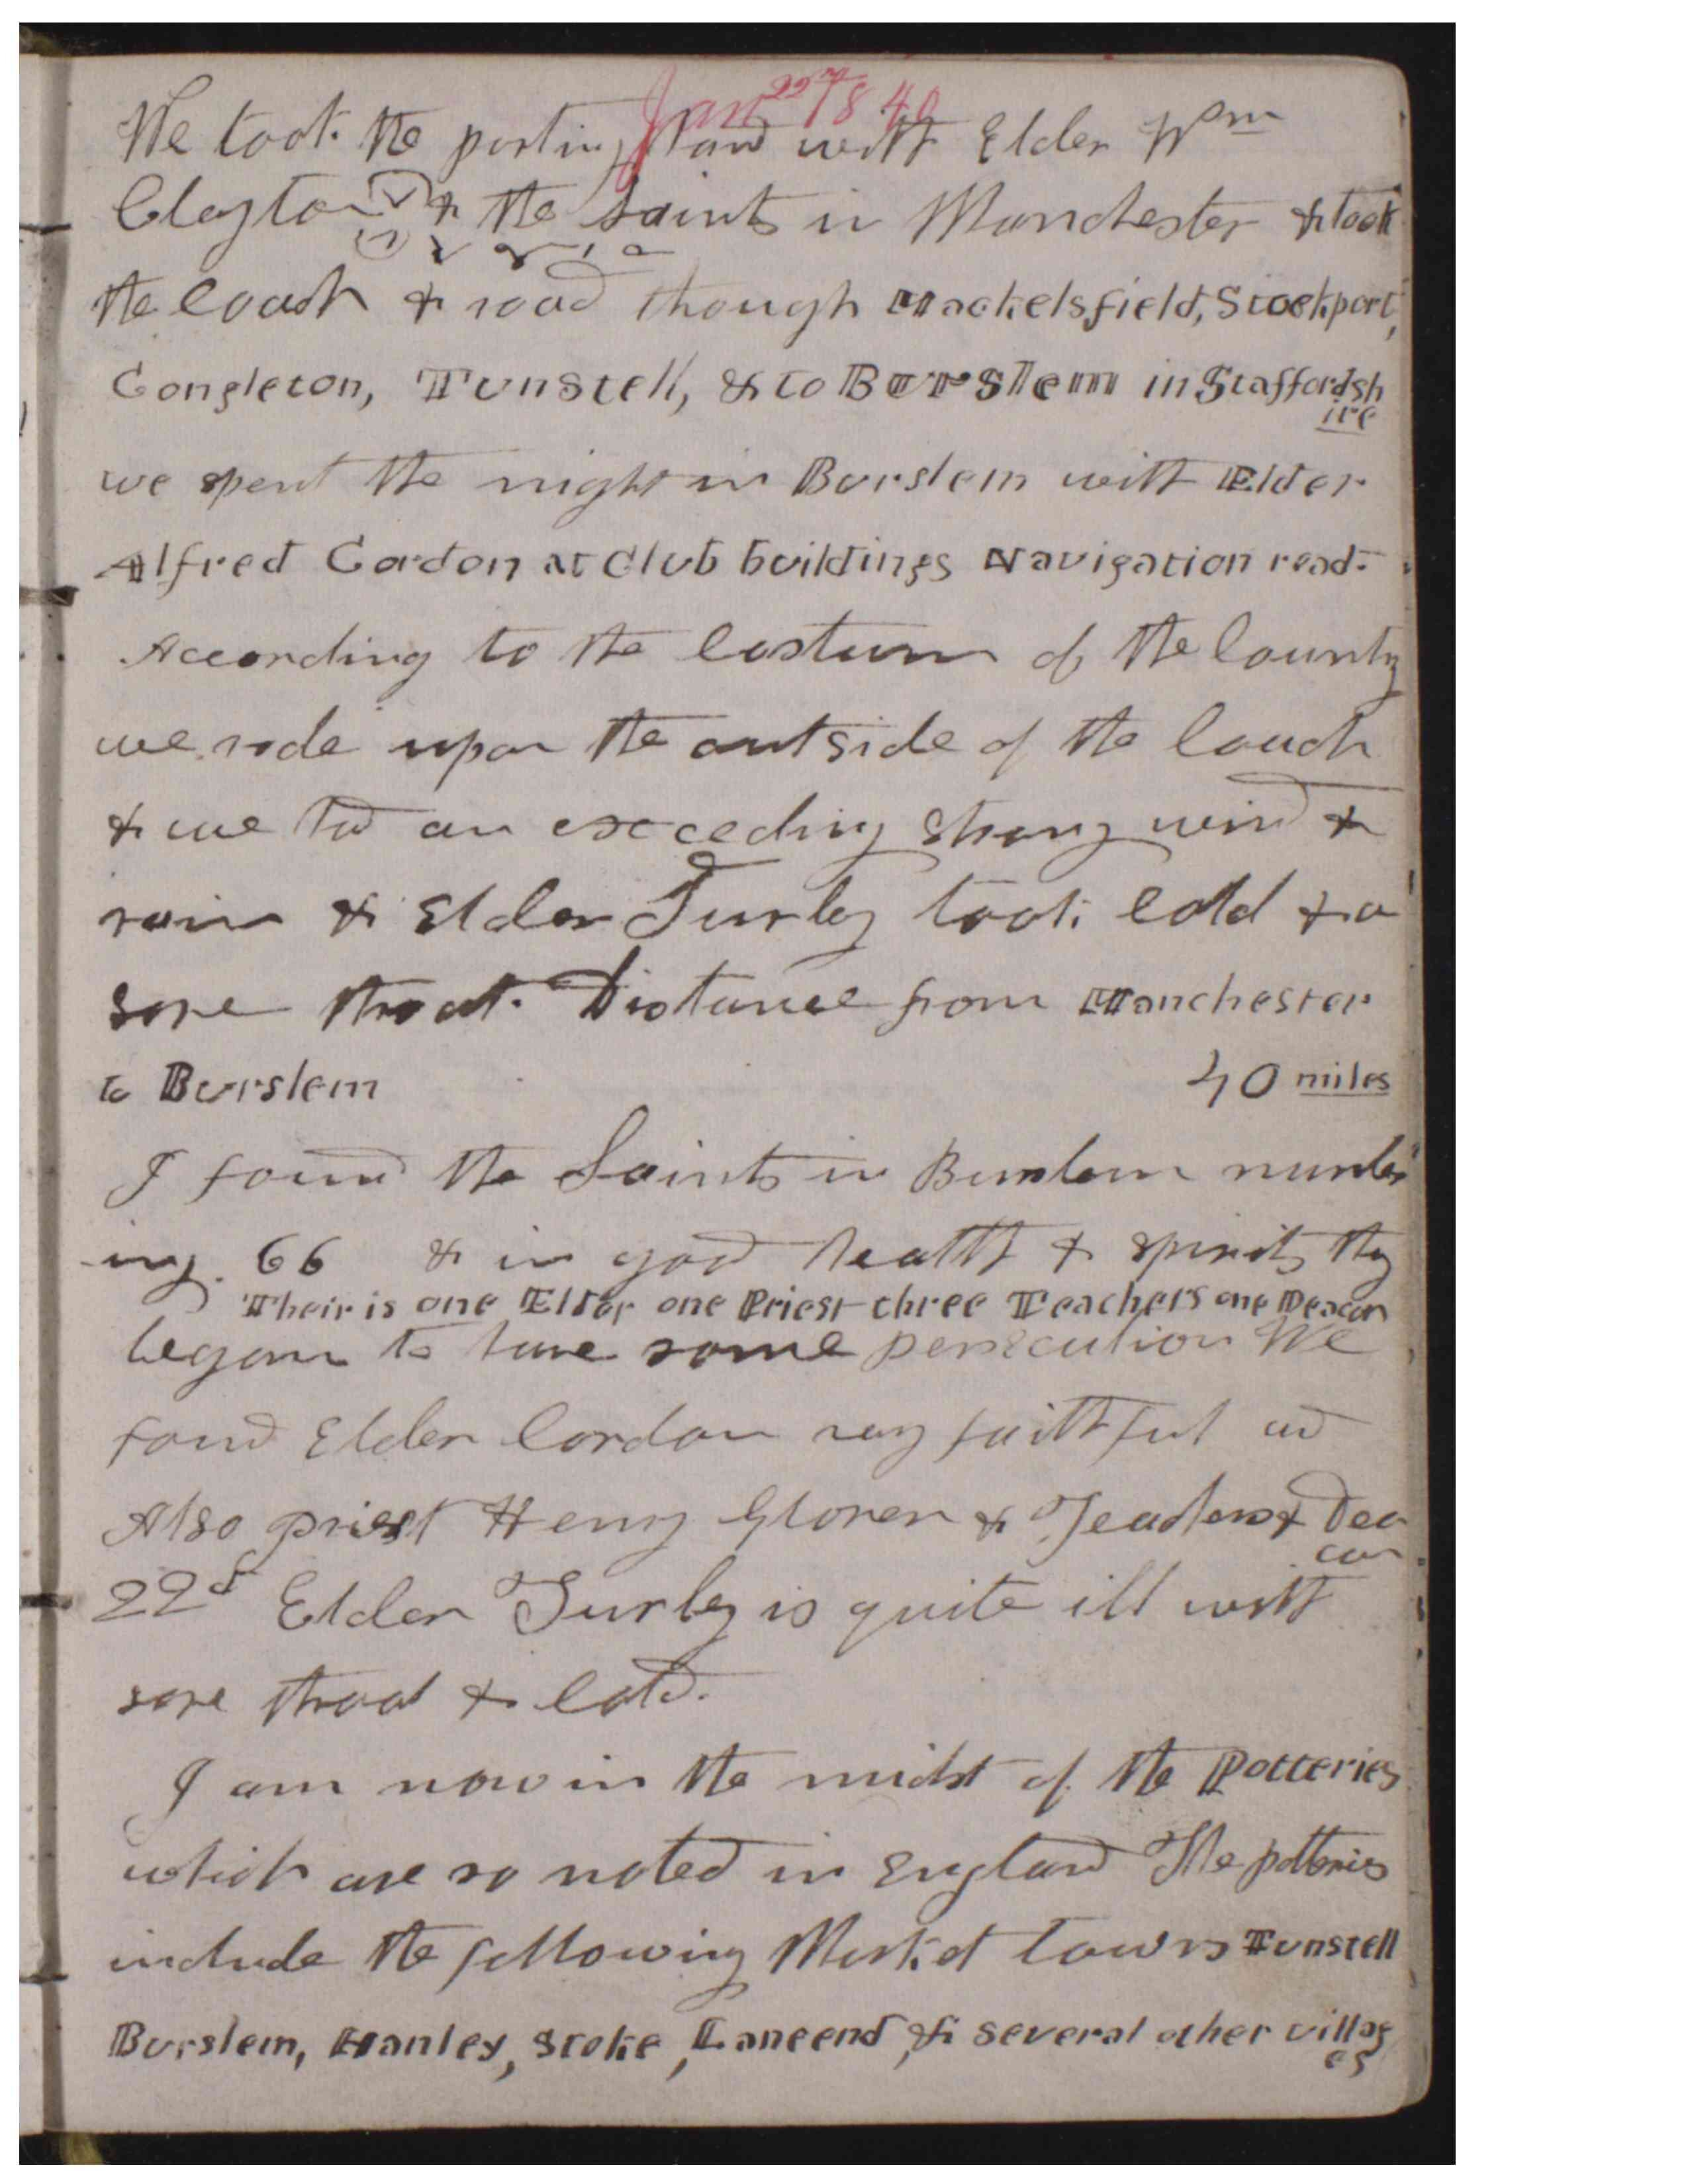 Jan 22nd 1840
We took the parting hand with Elder Wm
Clayton & the Saints in Manchester & took
the Coach & road though Mackelsfield, Stockport,
Congleton, Tunstell, & to Burslem in Staffordsh
ire
we spent the night in Burslem with Elder
Alfred Cordon at Club buildings Navigation road.
According to the Custum of the County
we rode upon the outside of the Coach
& we had an exceeding strong wind &
rain & Elder Turley took cold & a
sore throat. Distance from Manchester
to Burslem 40 miles
I found the Saints in Burslem number
-ing 66 & in good health & spirits they
Their is one Elder one Priest three Teachers one Deacon
began to have some persecution We
found Elder Cordon very faithful and
Also priest Henry Glover & Teachers & Dea
con
22d Elder Turley is quite ill with
sore throat & cold.
I am now in the midst of the Potteries
which are so noted in England The potteries
include the following Market towns Tunstell
Burslem, Hanley, Stoke, Laneend, & several other villag
es